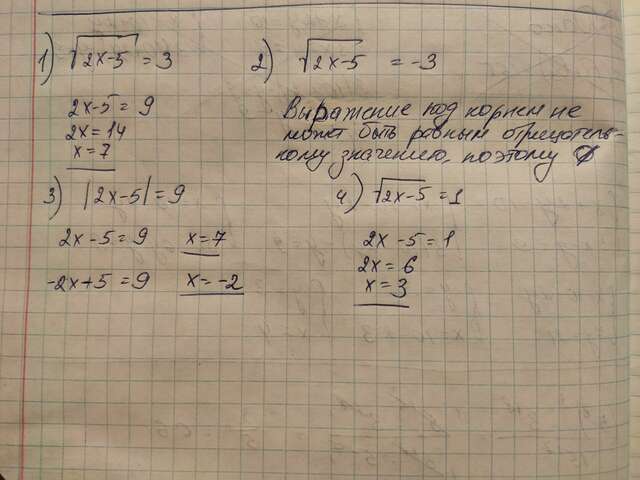 1) √2x-5 = 3
2) √2x-5 = -3
2x-5 = 9
2x = 14
x = 7
Выражение под корнем не
может быть равным отрицатель-
ному значению, поэтому ∅
3) |2x-5| = 9
2x-5 = 9 x = 7
-2x+5 = 9 x = -2
4) √2x-5 = 1
2x-5 = 1
2x = 6
x = 3